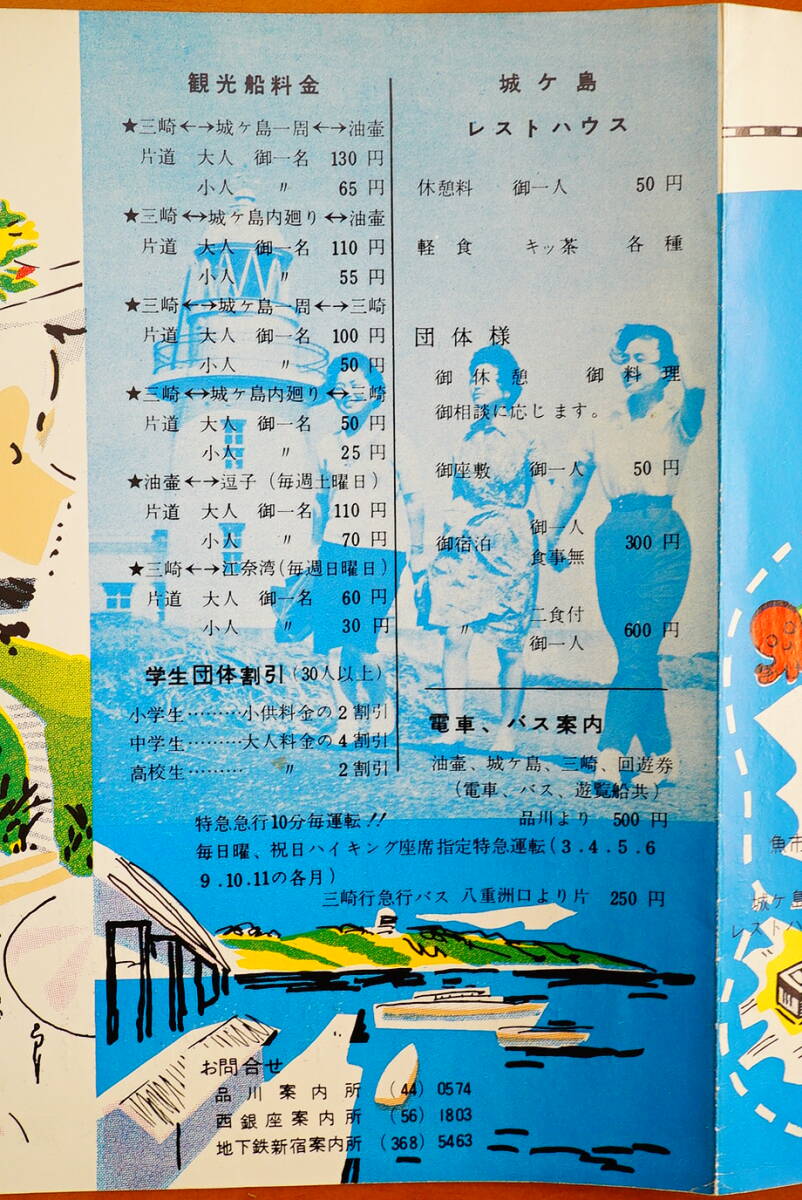 観光船料金
★三崎←→城ケ島一周←→油壷
片道 大人 御一名 130円
小人 〃 65円
★三崎←→城ケ島内廻り←→油壷
片道 大人 御一名 110円
小人 〃 55円
★三崎←→城ケ島一周←→三崎
片道 大人 御一名 100円
小人 〃 50円
★三崎←→城ケ島内廻り←→三崎
片道 大人 御一名 50円
小人 〃 25円
★油壷←→逗子(毎週土曜日)
片道 大人 御一名 110円
小人 〃 70円
★三崎←→江奈湾(毎週日曜日)
片道 大人 御一名 60円
小人 〃 30円
学生団体割引(30人以上)
小学生………小供料金の2割引
中学生………大人料金の4割引
高校生……… 〃 2割引
城ケ島
レストハウス
休憩料 御一人 50円
軽食 キッ茶 各種
団体様
御休憩 御料理
御相談に応じます。
御座敷 御一人 50円
御宿泊 御一人 食事無 300円
〃 二食付 御一人 600円
電車、バス案内
油壷、城ケ島、三崎、回遊券
(電車、バス、遊覧船共)
品川より 500円
特急急行10分毎運転!!
毎日曜、祝日ハイキング座席指定特急運転(3.4.5.6
9.10.11の各月)
三崎行急行バス 八重洲口より片 250円
お問合せ
品川案内所 (44)0574
西銀座案内所 (56)1803
地下鉄新宿案内所 (368)5463
魚市
城ケ島
レストハ